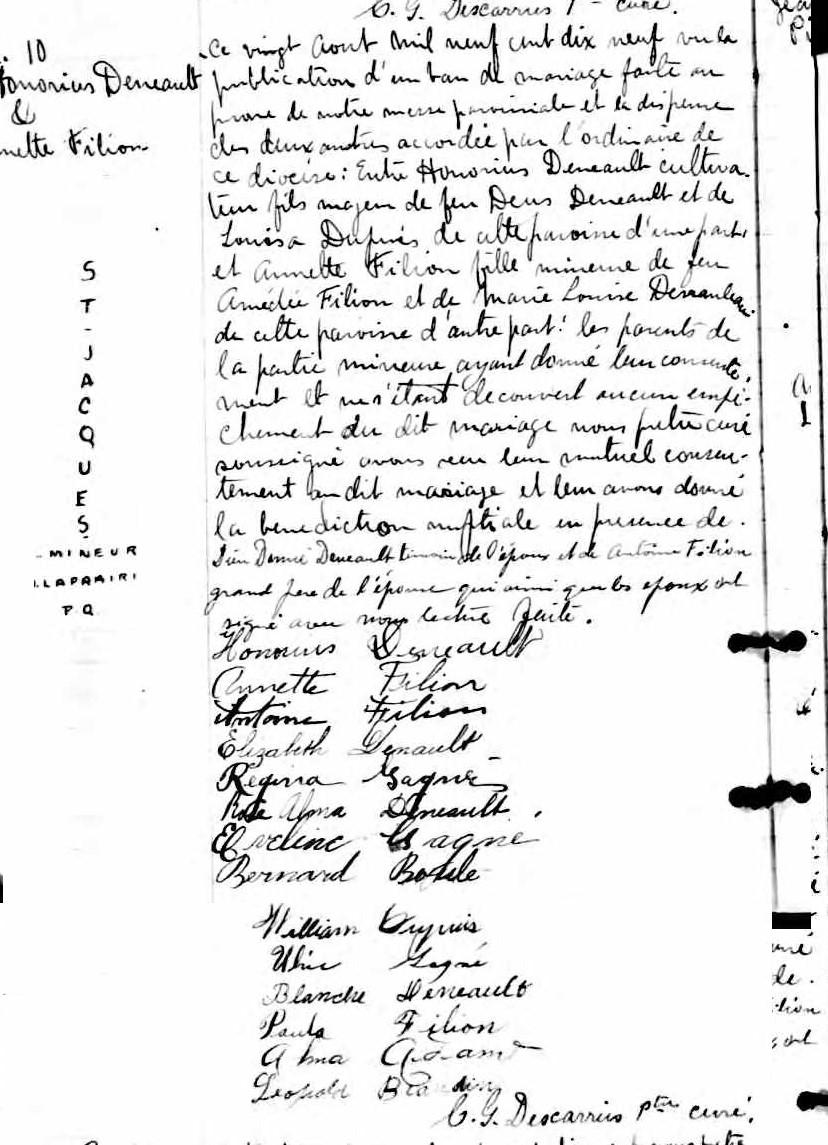 C. G. Descarries Ptre curé.
. 10
Honorius Deneault
&
nette Filion
Ce vingt Aout Mil neuf cent dix neuf vu la
publication d'un ban de mariage faite au
prone de notre messe paroissiale et la dispense
des deux autres accordée par l'ordinaire de
ce diocèse: Entre Honorius Deneault cultiva-
teur fils majeur de feu Deus Deneault et de
Louisa Dupuis de cette paroisse d'une part,
et Annette Filion fille mineure de feu
Amédée Filion et de Marie Louise
de cette paroisse d'autre part: les parents de
la partie mineure ayant donné leur consente-
ment et ne s'étant decouvert aucun empê-
chement du dit mariage nous prêtre curé
soussigné avons recu leur mutuel consen-
tement au dit mariage et leur avons donné
la benediction nuptiale en presence de
Dieu Donné Deneault temoin de l'époux et de Antoine Filion
grand père de l'épouse qui ainsi que les epoux ont
signé avec nous lecture faite.
ST-JACQUES
-MINEUR
LAPRAIRI
P.Q
Honorius Deneault
Annette Filion
Antoine Filion
Elizabeth Denault
Regina Gagné
Rose Alma Deneault.
Eveline Gagne
Bernard
William Dupuis
Gagné
Blanche Deneault
Paula Filion
Alma
Leopold
C. G. Descarries ptre curé.